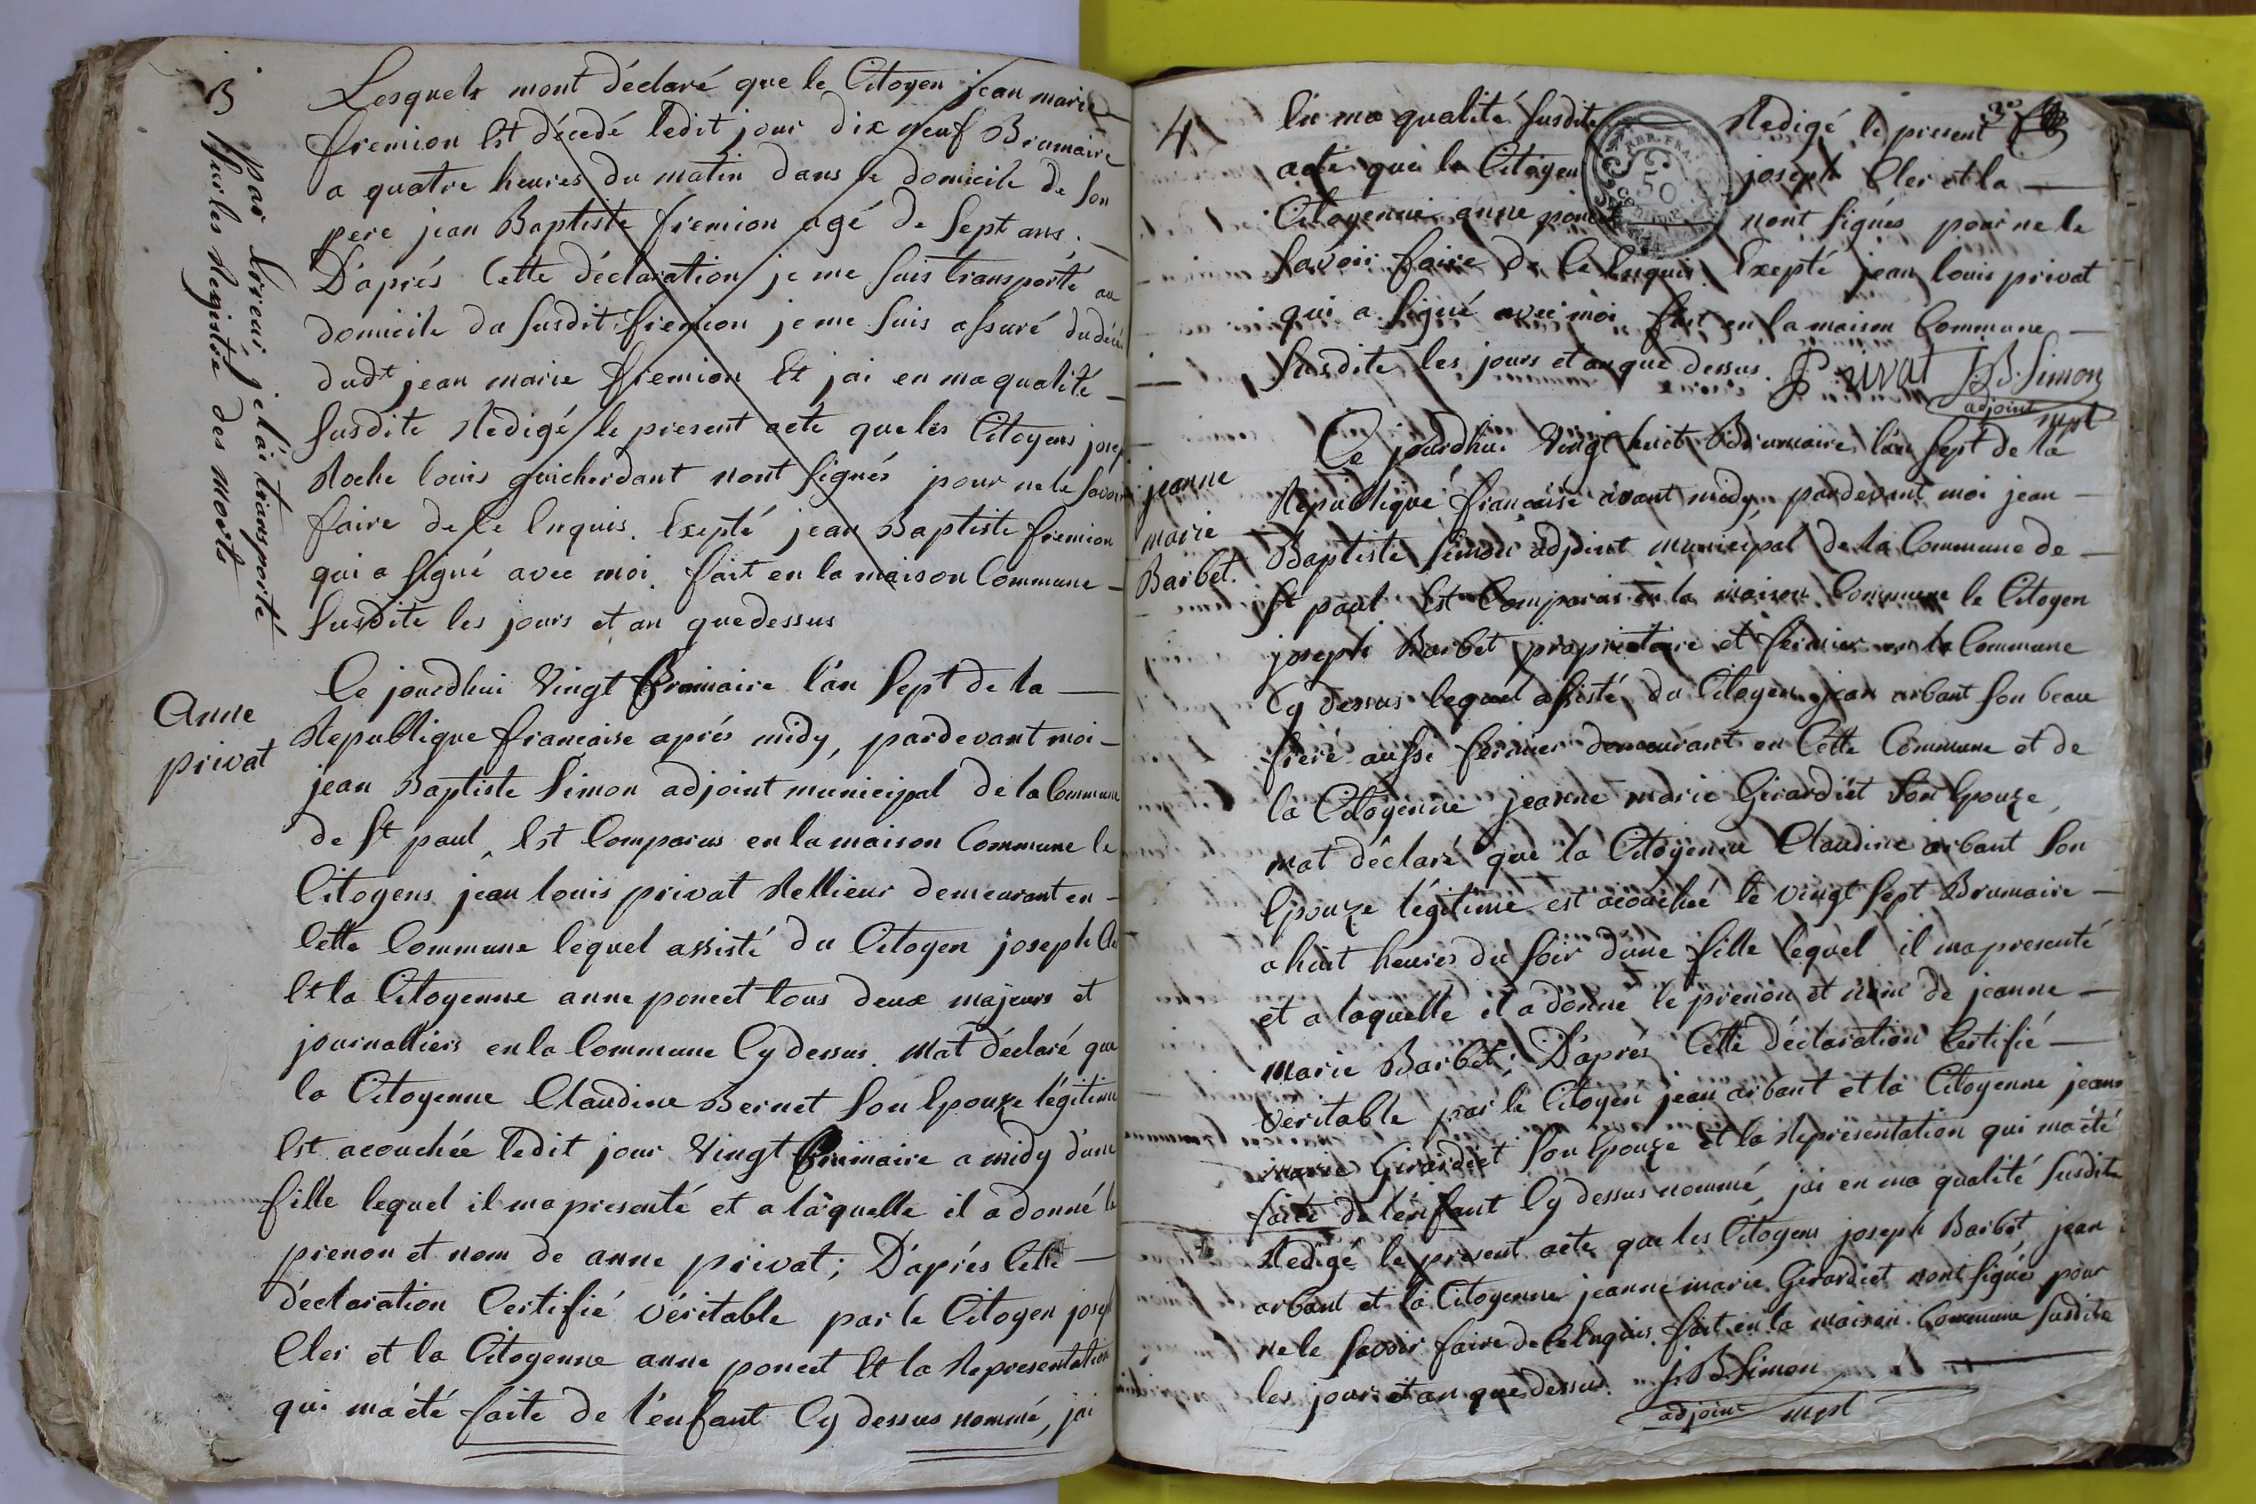 3
par erreur je lai transporté
sur les Registre des morts
Lesquels mont déclaré que le Citoyen jean marie
fremion Est décedé ledit jour dix neuf Brumaire
a quatre heures du matin dans le domicile de son
pere jean Baptiste fremion agé de Sept ans.
D'aprés Cette déclaration je me suis transporté au
domicile du susdit fremion je me suis assuré du décé
dudt jean marie fremion Et jai en ma qualité
susdite Redigé le present acte que les Citoyens josep
Roche louis guicherdant nont signés pour ne le savoir
faire de ce Enquis. Exepté jean Baptiste fremion
qui a signé avec moi fait en la maison Commune
susdite les jours et an que dessus
Anne
privat
Ce jourdhui Vingt Brumaire l'an Sept de la
Republique francaise aprés midy, pardevant moi
jean Baptiste Simon adjoint municipal de la Commune
de St paul, Est Comparus en la maison Commune le
Citoyens jean louis privat Rellieur demeurant en
Cette Commune lequel assisté du Citoyen joseph Cle
Et la Citoyenne anne poncet tous deux majeurs et
journalliers en la Commune Cy dessus. Mat déclaré que
la Citoyenne Claudine Bernet Son Epouze légitime
Est acouchée ledit jour Vingt Brumaire a midy d'une
fille lequel il ma presenté et a laquelle il a donné le
prenon et nom de anne privat; D'aprés Cette
déclaration Certifié véritable par le Citoyen josep
Cler et la Citoyenne anne poncet Et la Representation
qui ma été faite de l'enfant Cy dessus nommé, jai
4
En ma qualité susdite Redigé le present
acte que le Citoyen joseph Cler et la
Citoyenne anne poncet nont signés pour ne le
savoir faire de ce Enquis Exepté jean louis privat
qui a signé avec moi fait en la maison Commune
susdite les jours et an que dessus. Privat J.B. Simon
adjoint mpl
REP. FRA.
50
jeanne
marie
Barbet.
Ce jourdhui Vingt huit Brumaire l'an Sept de la
Republique française avant midy, pardevant moi jean
Baptiste Simon adjoint municipal de la Commune de
St paul Est Comparus en la maison Commune le Citoyen
joseph Barbet propriétaire et fermier en la Commune
Cy dessus lequel assisté du Citoyen jean arbant son beau
frere aussi fermier demeurant en Cette Commune et de
la Citoyenne jeanne marie Girardiet son Epouze,
mat déclaré que la Citoyenne Claudine arbant son
Epouze légitime est acouchée le vingt sept Brumaire
a huit heures du soir d'une fille lequel il ma presenté
et a laquelle il a donné le prenon et nom de jeanne
marie Barbet; D'aprés Cette déclaration Certifié
véritable par le Citoyen jean arbant et la Citoyenne jeanne
marie Girardiet Son Epouze et la Représentation qui ma été
faite de l'enfant Cy dessus nommé, jai en ma qualité susdite
Redigé le present acte que les Citoyens joseph Barbet, jean
arbant et la Citoyenne jeanne marie Girardiet nont signés pour
ne le savoir faire de ce Enquis. fait en la maison Commune susdite
les jour et an que dessus. J.B Simon
adjoint mpl